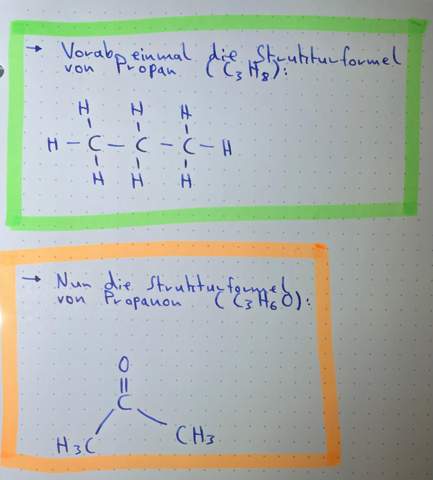 → Vorab einmal die Strukturformel
von Propan (C₃H₈):
H H H
H – C – C – C – H
H H H
→ Nun die Strukturformel
von Propanon (C₃H₆O):
O
C
H₃C CH₃